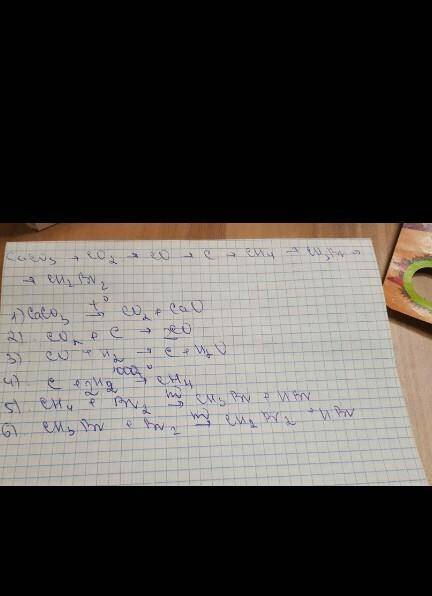 CaCO₃ → CO₂ → CO → C → CH₄ → CH₃Br →
→ CH₂Br₂
1) CaCO₃ →t° CO₂ + CaO
2) CO₂ + C → 2CO
3) CO + H₂ → C + H₂O
4) C + 2H₂ →1000° CH₄
5) CH₄ + Br₂ → CH₃Br + HBr
6) CH₃Br + Br₂ → CH₂Br₂ + HBr